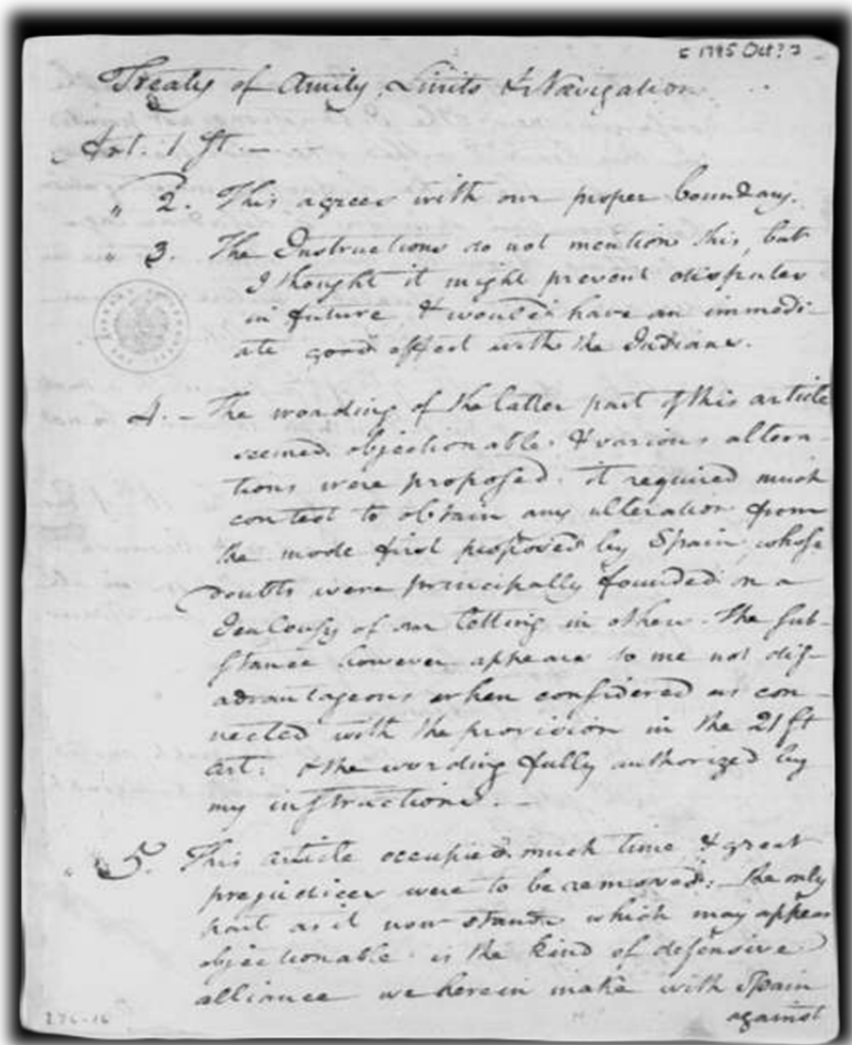 [1795 Oct??]
Treaty of Amity, Limits & Navigation.
Art. 1 st. —
" 2. This agrees with our proper boundary.
" 3. The Instructions do not mention this, but
I thought it might prevent disputes
in future & would have an immedi-
ate good effect with the Indians.
4. - The wording of the latter part of this article
seemed objectionable. & various altera-
tions were proposed. it required much
contest to obtain any alteration from
the mode first proposed by Spain, whose
doubts were principally founded on a
Jealousy of our letting in others. The sub-
stance however appears to me not dis-
advantageous when considered as con-
nected with the provision in the 21st
art: & the wording fully authorized by
my instructions. —
" 5. This article occupied much time & great
prejudices were to be removed: the only
part as it now stands which may appear
objectionable is the kind of defensive
alliance we herein make with Spain
against
276-16